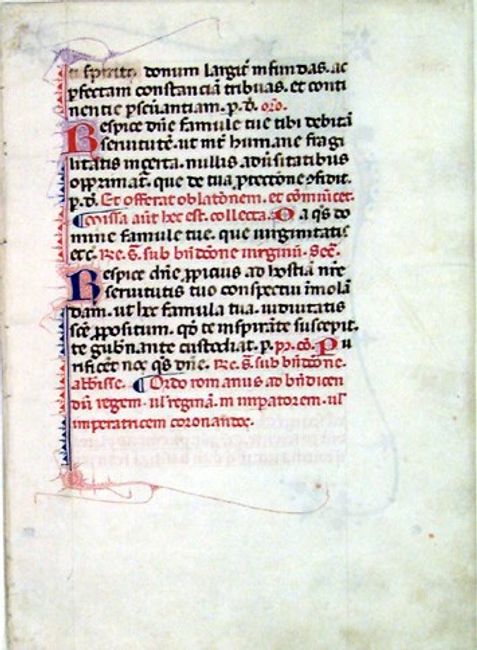 spiritꝰ donum largit̃ infundas. ac
ꝑfectam constanciã tribuas. et conti
nentie ꝑseũantiam. p. d̃. oro.
Respice dñe famule tue tibi debitã
seruitutẽ. ut int̃ humane fragi
litatis incerta. nullis adũsitatibus
opprimat᷑. que de tua ꝓtectõne ꝯfidit.
p. d̃. Et offerat oblatõnem. et cõmũicet.
¶ Missa aũt hec est. collecta. Da qs̃ do
mine famule tue. que uirginitatis
etc. Re. s̃. sub bñdcõne uirginũ. Sec̃.
Respice dñe ꝓpicius ad hostiã nr̃e
seruitutis tuo conspectui ĩmolã
dam. ut hec famula tua. uiduitatis
sc̃e ꝓpositum. qd̃ te inspirãte suscepit.
te gub̃nante custodiat. p. pꝰ. cõ. Pu
rificet nos qs̃ dñe. Re. s̃. sub bñdcõne.
abb̃isse. ¶ Ordo romanus ad bñdicen
dũ regem. ul̃ reginã. ĩ imperatorem. ul̃
imperatricem coronandos.